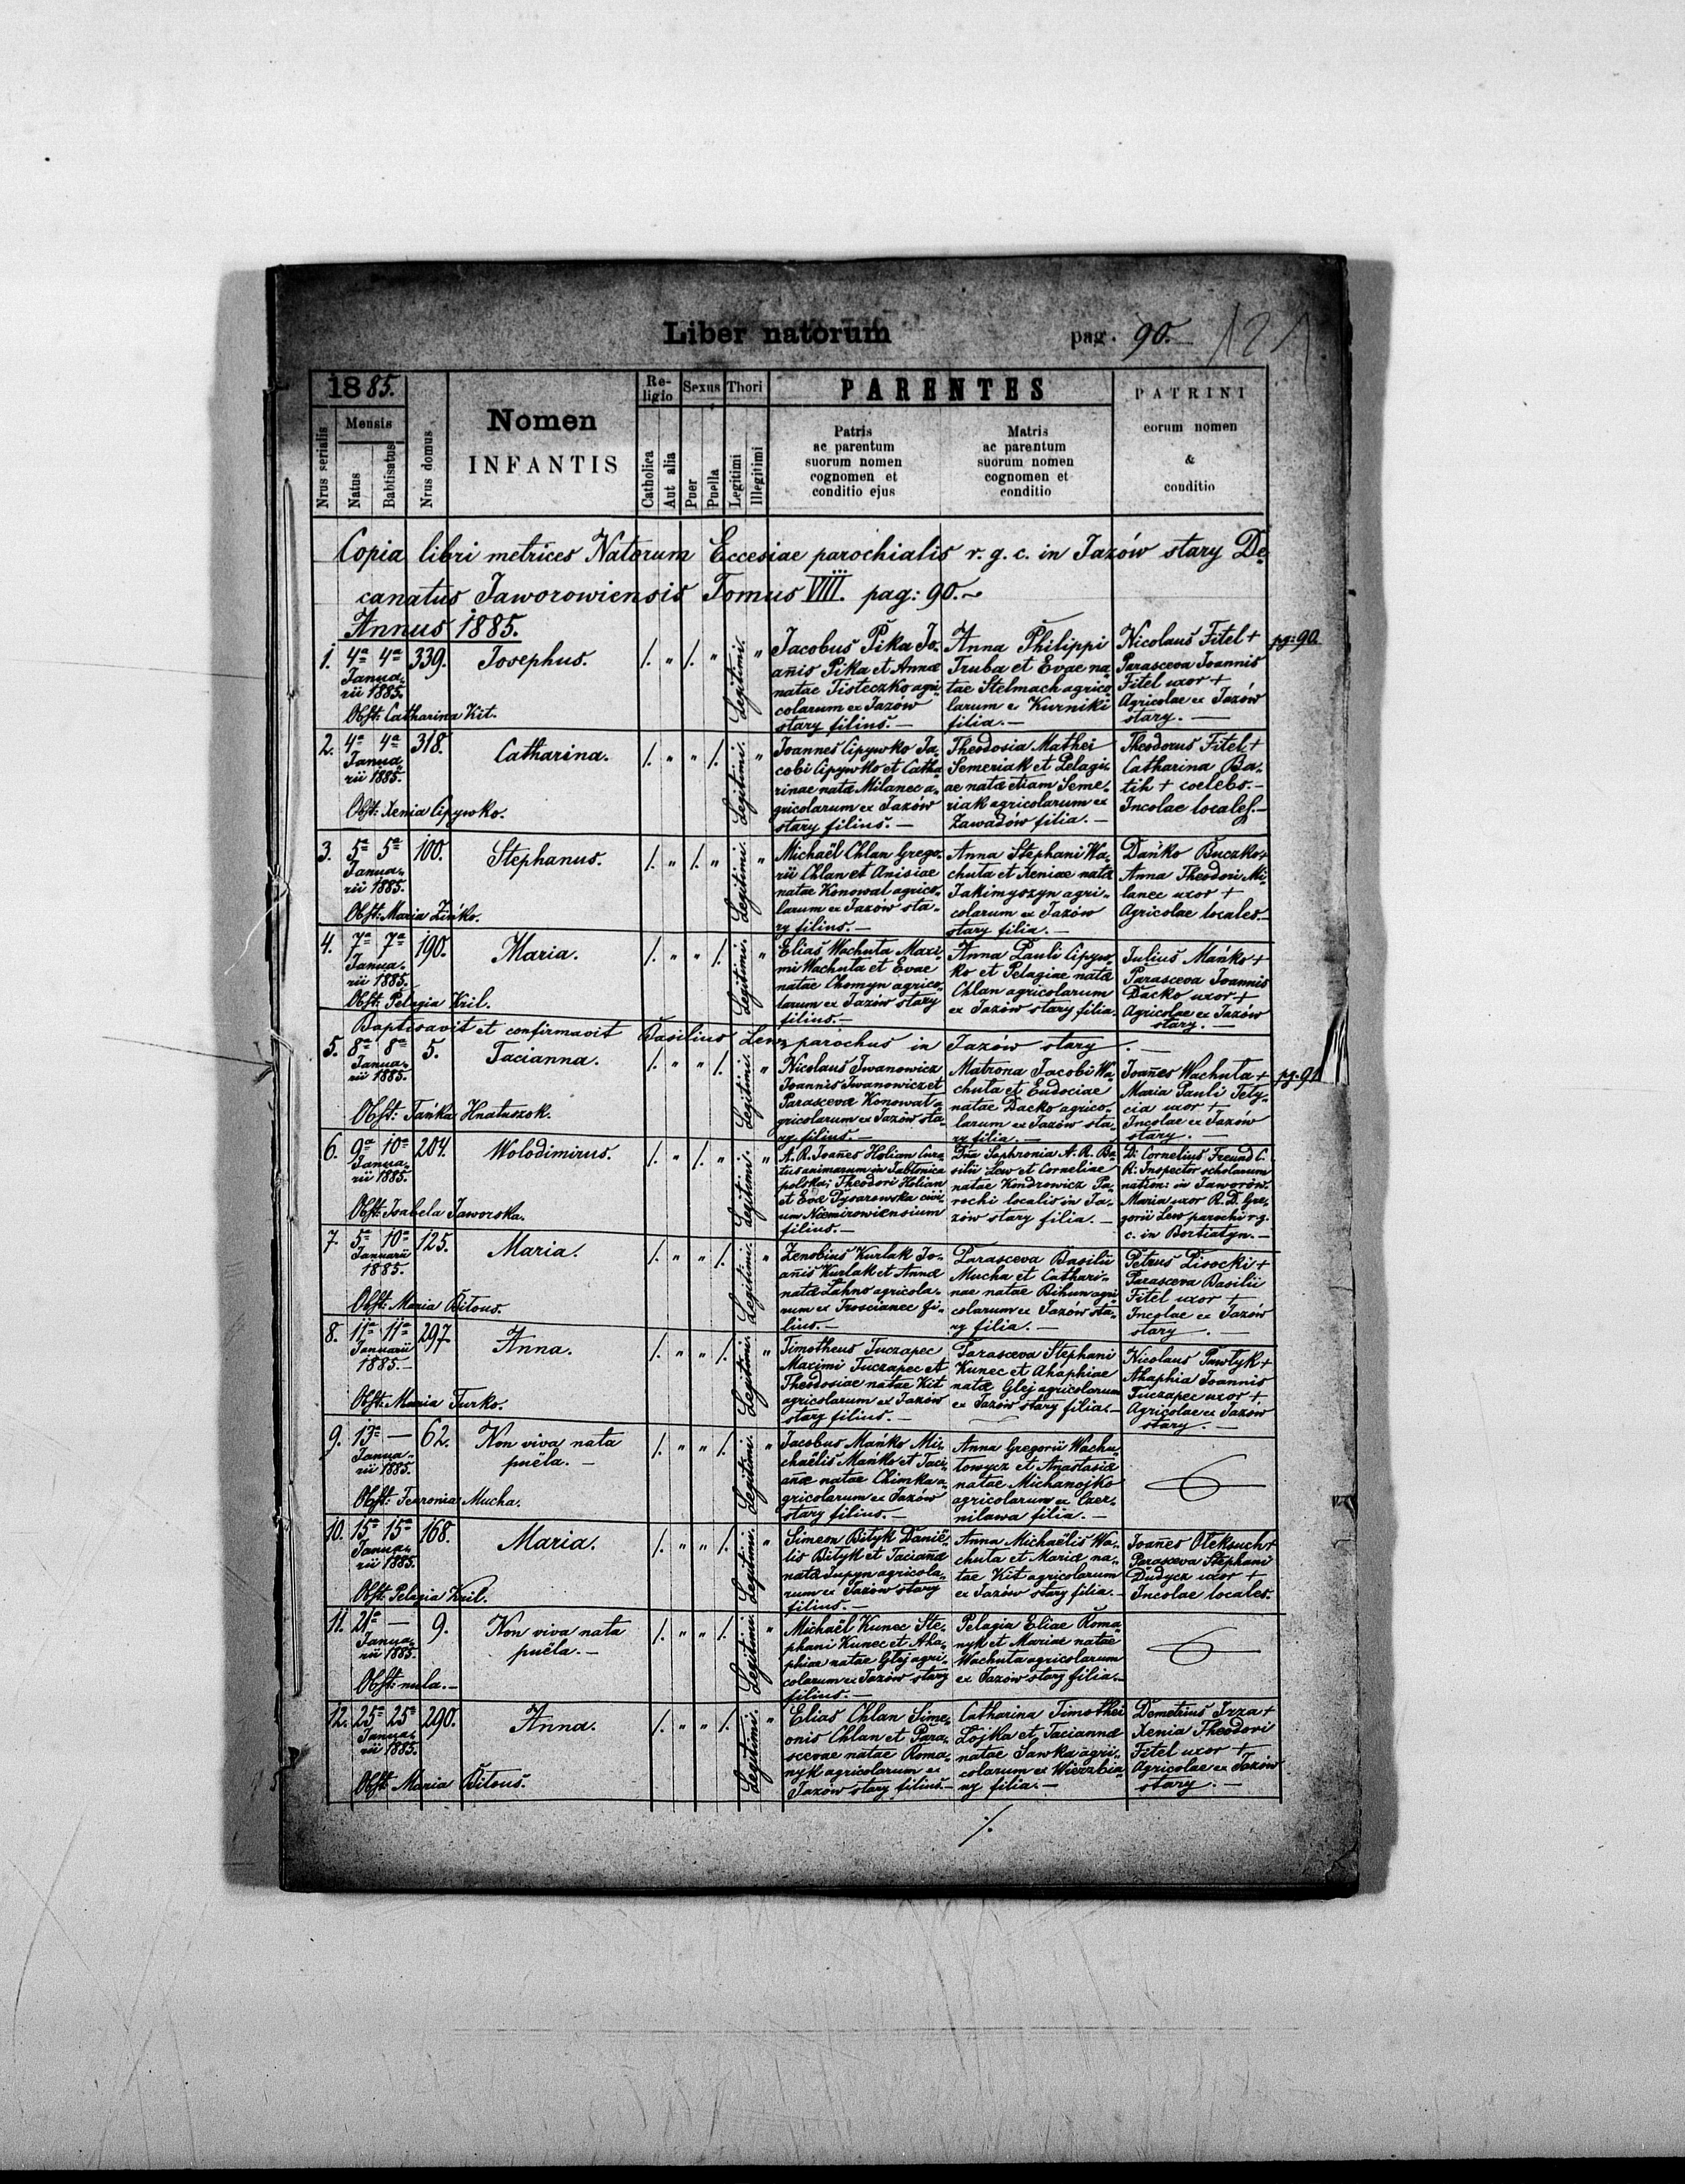 Liber natorum pag. 90. 121
1885.
Mensis
Nrus serialis
Natus
Babtisatus
Nrus domus
Nomen
INFANTIS
Re-
ligio
Catholica
Aut alia
Sexus
Puer
Puella
Thori
Legitimi
Illegitimi
PARENTES
Patris
ac parentum
suorum nomen
cognomen et
conditio ejus
Matris
ac parentum
suorum nomen
cognomen et
conditio
PATRINI
eorum nomen
&
conditio
Copia libri metrices Natorum Eccesiae parochialis r. g. c. in Jazów stary De-
canatus Jaworowiensis Tomus VIII. pag: 90.
Annus 1885.
1. 4ª 4ª 339.
Janua-
rii 1885.
Obst: Catharina Kit.
Josephus.
/. " /. " Legitimi. "
Jacobus Pika Jo-
anis Pika et Annae
natae Tisteczko agri-
colarum ex Jazów
stary filius. —
Anna Philippi
Truba et Evae na-
tae Stelmach agrico-
larum e Kurniki
filia. —
Nicolaus Fitel +
Parasceva Joannis
Fitel uxor +
Agricolae ex Jazów
stary. —
pg: 90.
2. 4ª 4ª 318.
Janua-
rii 1885.
Obst: Xenia Cipywko.
Catharina.
/. " " /. Legitimi. "
Joannes Cipywko Ja-
cobi Cipywko et Catha-
rinae natae Milanec a-
gricolarum ex Jazów
stary filius. —
Theodosia Mathei
Semeriak et Pelagi-
ae natae etiam Seme-
riak agricolarum ex
Zawadów filia. —
Theodorus Fitel +
Catharina Ba-
tih + coelebs. —
Incolae locales. —
3. 5ª 5ª 100.
Janua-
rii 1885.
Obst: Maria Zińko.
Stephanus.
/. " /. " Legitimi. "
Michaël Chlan Grego-
rii Chlan et Anisiae
natae Konowal agrico-
larum ex Jazów sta-
ry filius. —
Anna Stephani Wa-
chuta et Xeniae natae
Jakimyszyn agri-
colarum ex Jazów
stary filia. —
Dańko Buczko +
Anna Theodori Mi-
lanec uxor +
Agricolae locales. —
4. 7ª 7ª 190.
Janua-
rii 1885.
Obst: Pelagia Kril.
Maria.
/. " " /. Legitimi. "
Elias Wachuta Maxi-
mi Wachuta et Evae
natae Chomyn agrico-
larum ex Jazów stary
filius. —
Anna Pauli Cipyw-
ko et Pelagiae natae
Chlan agricolarum
ex Jazów stary filia.
Julius Mańko +
Parasceva Joannis
Dacko uxor +
Agricolae ex Jazów
stary. —
Baptisavit et confirmavit Basilius Lew parochus in Jazów stary. —
5. 8ª 8ª 5.
Janua-
rii 1885.
Obst: Tańka Hnatuszok.
Tacianna.
/. " " /. Legitimi. "
Nicolaus Iwanowicz
Joannis Iwanowicz et
Parascevae Konowal a-
gricolarum ex Jazów sta-
ry filius. —
Matrona Jacobi Wa-
chuta et Eudociae
natae Dacko agrico-
larum ex Jazów sta-
ry filia. —
Joañes Wachuta +
Maria Pauli Tety-
cia uxor +
Incolae ex Jazów
stary. —
pg: 91
6. 9ª 10ª 204.
Janua-
rii 1885.
Obst: Isabela Jaworska.
Wolodimirus.
/. " /. " Legitimi. "
A. R. Joañes Holian Cura-
tus animarum in Jablonica
polska; Theodori Holian
et Evae Pysarowska civi-
um Niemirowiensium
filius. —
Dña Sophronia A. R. Ba-
silii Lew et Corneliae
natae Kondrowicz Pa-
rochi localis in Ja-
zów stary filia. —
D: Cornelius Freund C.
K: Inspector scholarum
nation: in Jaworów.
Maria uxor R. D. Gre-
gorii Lew parochi r. g.
c. in Bortiatyn. —
7. 5ª 10ª 125.
Januarii
1885.
Obst: Maria Bitous.
Maria.
/. " " /. Legitimi. "
Zenobius Kurlak Jo-
anis Kurlak et Annae
natae Lahno agricola-
rum ex Troscianec fi-
lius. —
Parasceva Basilii
Mucha et Cathari-
nae natae Bihun agri-
colarum ex Jazów sta-
ry filia. —
Petrus Lisocki +
Parasceva Basilii
Fitel uxor +
Incolae ex Jazów
stary. —
8. 11ª 11ª 297.
Januarii
1885. —
Obst: Maria Turko.
Anna.
/. " " /. Legitimi. "
Timotheus Tuczapec
Maximi Tuczapec et
Theodosiae natae Kit
agricolarum ex Jazów
stary filius. —
Parasceva Stephani
Kunec et Ahaphiae
natae Glej agricolarum
ex Jazów stary filia. —
Nicolaus Pawlyk +
Ahaphia Joannis
Tuczapec uxor +
Agricolae ex Jazów
stary. —
9. 13ª — 62.
Janua-
rii 1885.
Obst: Fevronia Mucha.
Non viva nata
puela. —
/. " " /. Legitimi. "
Jacobus Mańko Mi-
chaëlis Mańko et Taci-
anae natae Chimka a-
gricolarum ex Jazów
stary filius. —
Anna Gregorii Wachu-
towycz et Anastasiae
natae Michanojko
agricolarum ex Czer-
nilawa filia. —
10. 15ª 15ª 168.
Janua-
rii 1885.
Obst: Pelagia Kril.
Maria.
/. " " /. Legitimi. "
Simeon Bityk Danië-
lis Bityk et Tacianae
natae Jupyn agricola-
rum ex Jazów stary
filius. —
Anna Michaëlis Wa-
chuta et Mariae na-
tae Kit agricolarum
ex Jazów stary filia. —
Joañes Oleksuch +
Parasceva Stephani
Dudycz uxor +
Incolae locales.
11. 21ª — 9.
Janua-
rii 1885.
Obst: nula. —
Non viva nata
puëla. —
/. " " /. Legitimi. "
Michaël Kunec Ste-
phani Kunec et Aha-
phiae natae Glej agri-
colarum ex Jazów stary
filius. —
Pelagia Eliae Roma-
nyk et Mariae natae
Wachuta agricolarum
ex Jazów stary filia. —
12. 25ª 25ª 290.
Janua-
rii 1885.
Obst: Maria Bitous.
Anna.
/. " " /. Legitimi. "
Elias Chlan Sime-
onis Chlan et Para-
scevae natae Roma-
nyk agricolarum ex
Jazów stary filius. —
Catharina Timothei
Lojka et Taciannae
natae Sawka agri-
colarum ex Wierzbia-
ny filia. —
Demetrius Irza +
Xenia Theodori
Fitel uxor +
Agricolae ex Jazów
stary. —